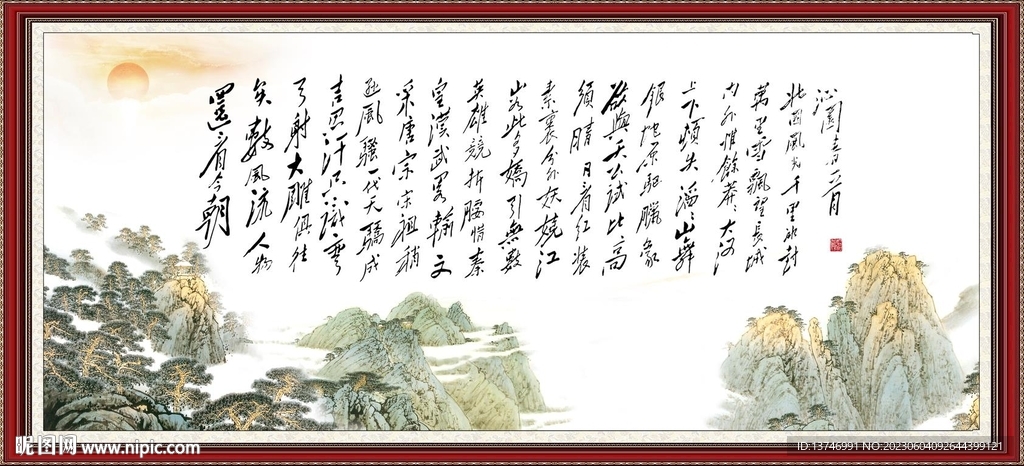 沁園春
北國風光千里冰封
萬里雪飄望長城
内外惟餘莽々大河
上下頓失滔々山舞
銀蛇原馳臘象
欲與天公試比高
須晴日看紅裝
素裹分外妖嬈江
山如此多嬌引無數
英雄競折腰惜秦
皇漢武畧輸文
采唐宗宋祖稍
遜風騷一代天驕成
吉思汗只識彎
弓射大雕俱往
矣數風流人物
還看今朝
昵图网 www.nipic.com
ID:13746991 NO:20230604092644399121